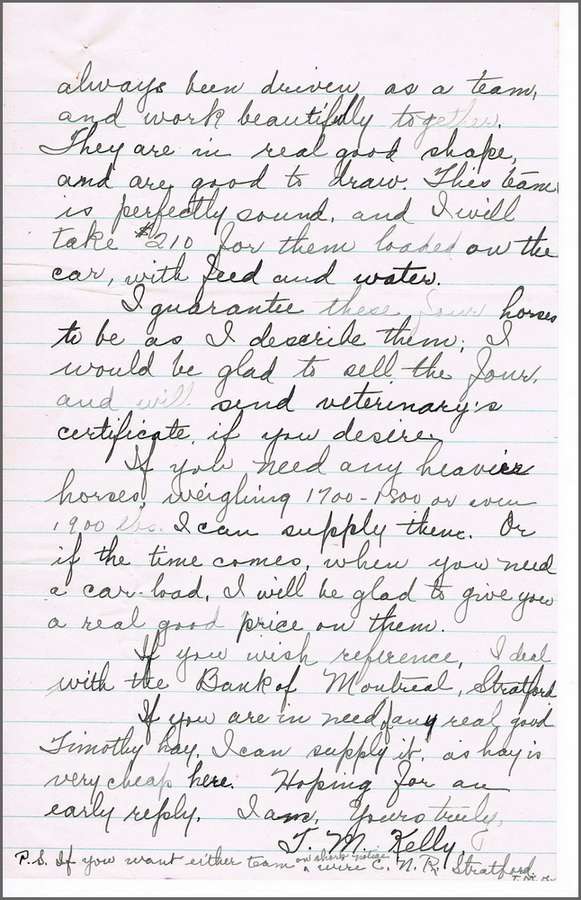 always been driven as a team,
and work beautifully together.
They are in real good shape,
and are good to draw. This team
is perfectly sound, and I will
take $210 for them loaded on the
car, with feed and water.
I guarantee these four horses
to be as I describe them; I
would be glad to sell the four,
and will send veterinary's
certificate, if you desire.
If you need any heavier
horses, weighing 1700-1800 or even
1900 lbs. I can supply them. Or
if the time comes, when you need
a car-load, I will be glad to give you
a real good price on them.
If you wish reference, I deal
with the Bank of Montreal, Stratford
If you are in need of any real good
Timothy hay, I can supply it, as hay is
very cheap here. Hoping for an
early reply. I am, Yours truly,
T. M. Kelly.
P.S. If you want either team on short notice wire C. N. R. Stratford.
T. M. K.